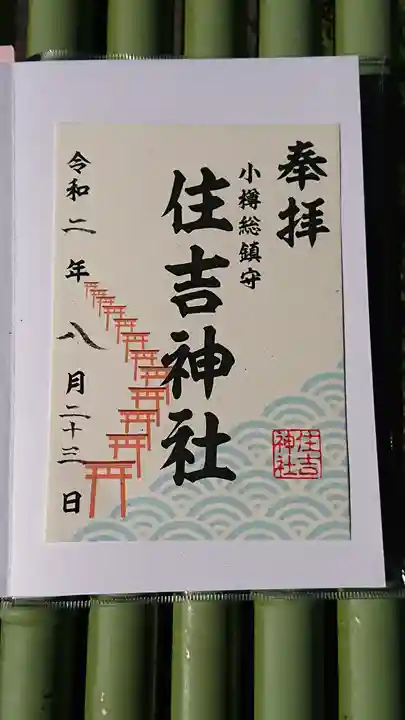 奉拝
小樽総鎮守
住吉神社
令和二年八月二十三日
住吉
神社